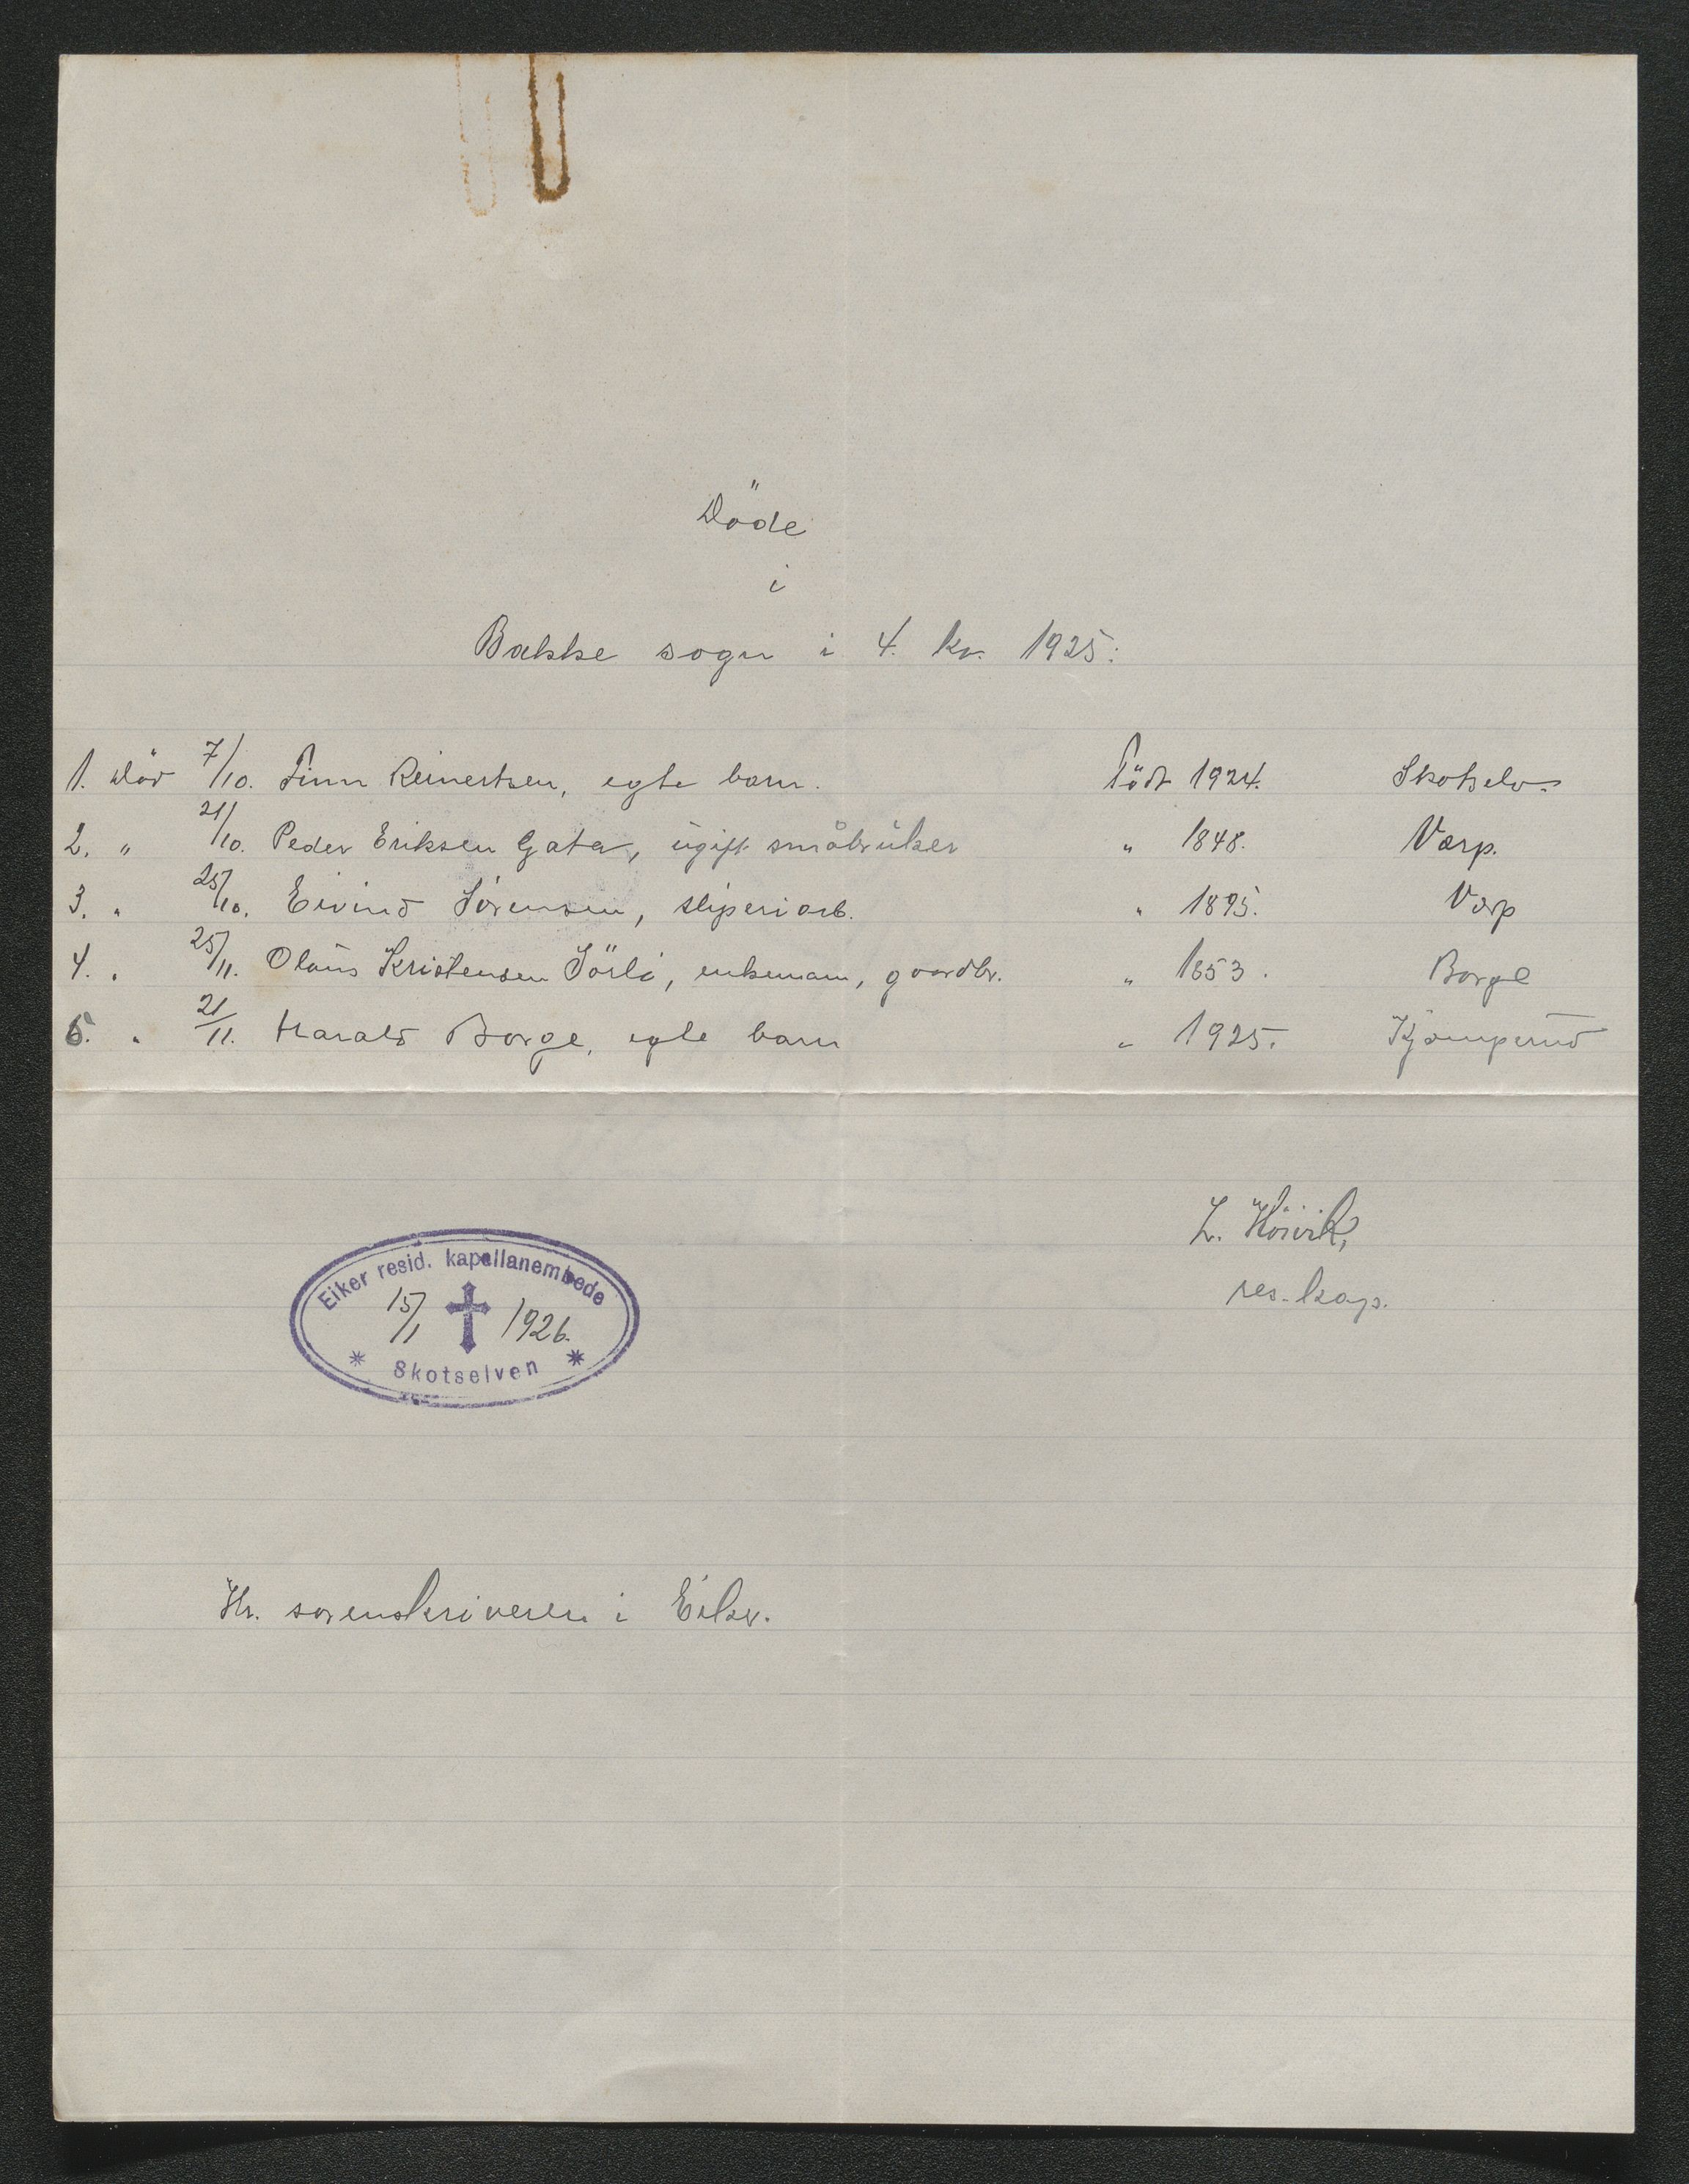 Döde
i
Bakke sogn i 4. kv. 1925:
1. Död 7/10. Finn Reinertsen, egte barn. Född 1924. Skotselv.
2. " 21/10. Peder Eriksen Gata, ugift småbruker " 1848. Værp.
3. " 25/10. Eivind Sörensen, sliperiarb. " 1895. Værp
4. " 25/11. Olaus Kristensen Sörli, enkemann, gaardbr. " 1853. Borge
5. " 21/11. Harald Borge, egte barn " 1925. Kjemperud
L. Höivik,
res. kap.
Eiker resid. kapellanembede
15/1 1926.
* Skotselven *
Hr. sorenskriveren i Eiker.